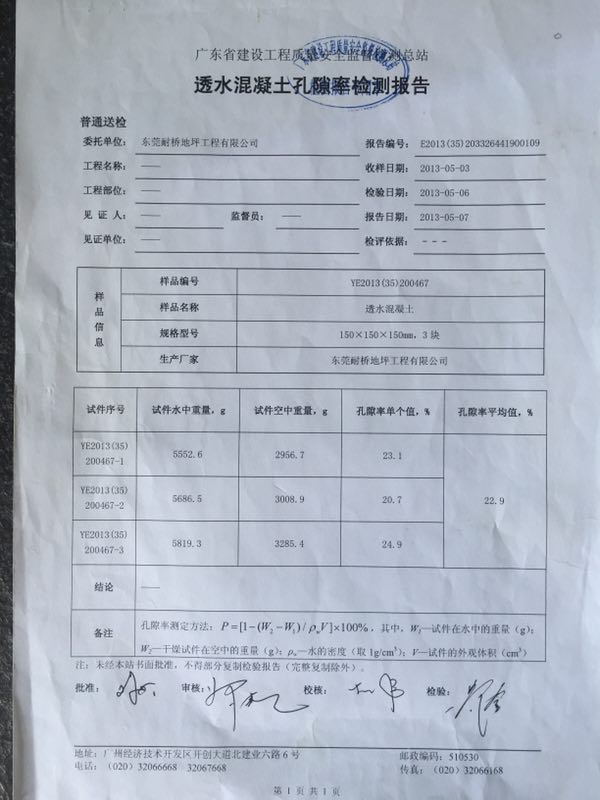 广东省建设工程质量安全监督检测总站
透水混凝土孔隙率检测报告
普通送检
委托单位: 东莞耐桥地坪工程有限公司 报告编号: E2013(35)203326441900109
工程名称: —— 收样日期: 2013-05-03
工程部位: —— 检验日期: 2013-05-06
见 证 人: —— 监督员: —— 报告日期: 2013-05-07
见证单位: —— 检评依据: ---
样品信息
样品编号 YE2013(35)200467
样品名称 透水混凝土
规格型号 150×150×150mm, 3 块
生产厂家 东莞耐桥地坪工程有限公司
试件序号 试件水中重量, g 试件空中重量, g 孔隙率单个值, % 孔隙率平均值, %
YE2013(35)
200467-1 5552.6 2956.7 23.1
YE2013(35)
200467-2 5686.5 3008.9 20.7 22.9
YE2013(35)
200467-3 5819.3 3285.4 24.9
结论 ——
备注 孔隙率测定方法: P=[1-(W₂-W₁)/ρwV]×100%, 其中, W₁—试件在水中的重量(g);
W₂—干燥试件在空中的重量(g); ρw—水的密度(取 1g/cm³); V—试件的外观体积(cm³)
注: 未经本站书面批准, 不得部分复制检验报告(完整复制除外)。
批准: 审核: 校核: 检验:
地址: 广州经济技术开发区开创大道北建业六路 6 号 邮政编码: 510530
电话: (020) 32066668 32067668 传真: (020) 32066168
第 1 页 共 1 页